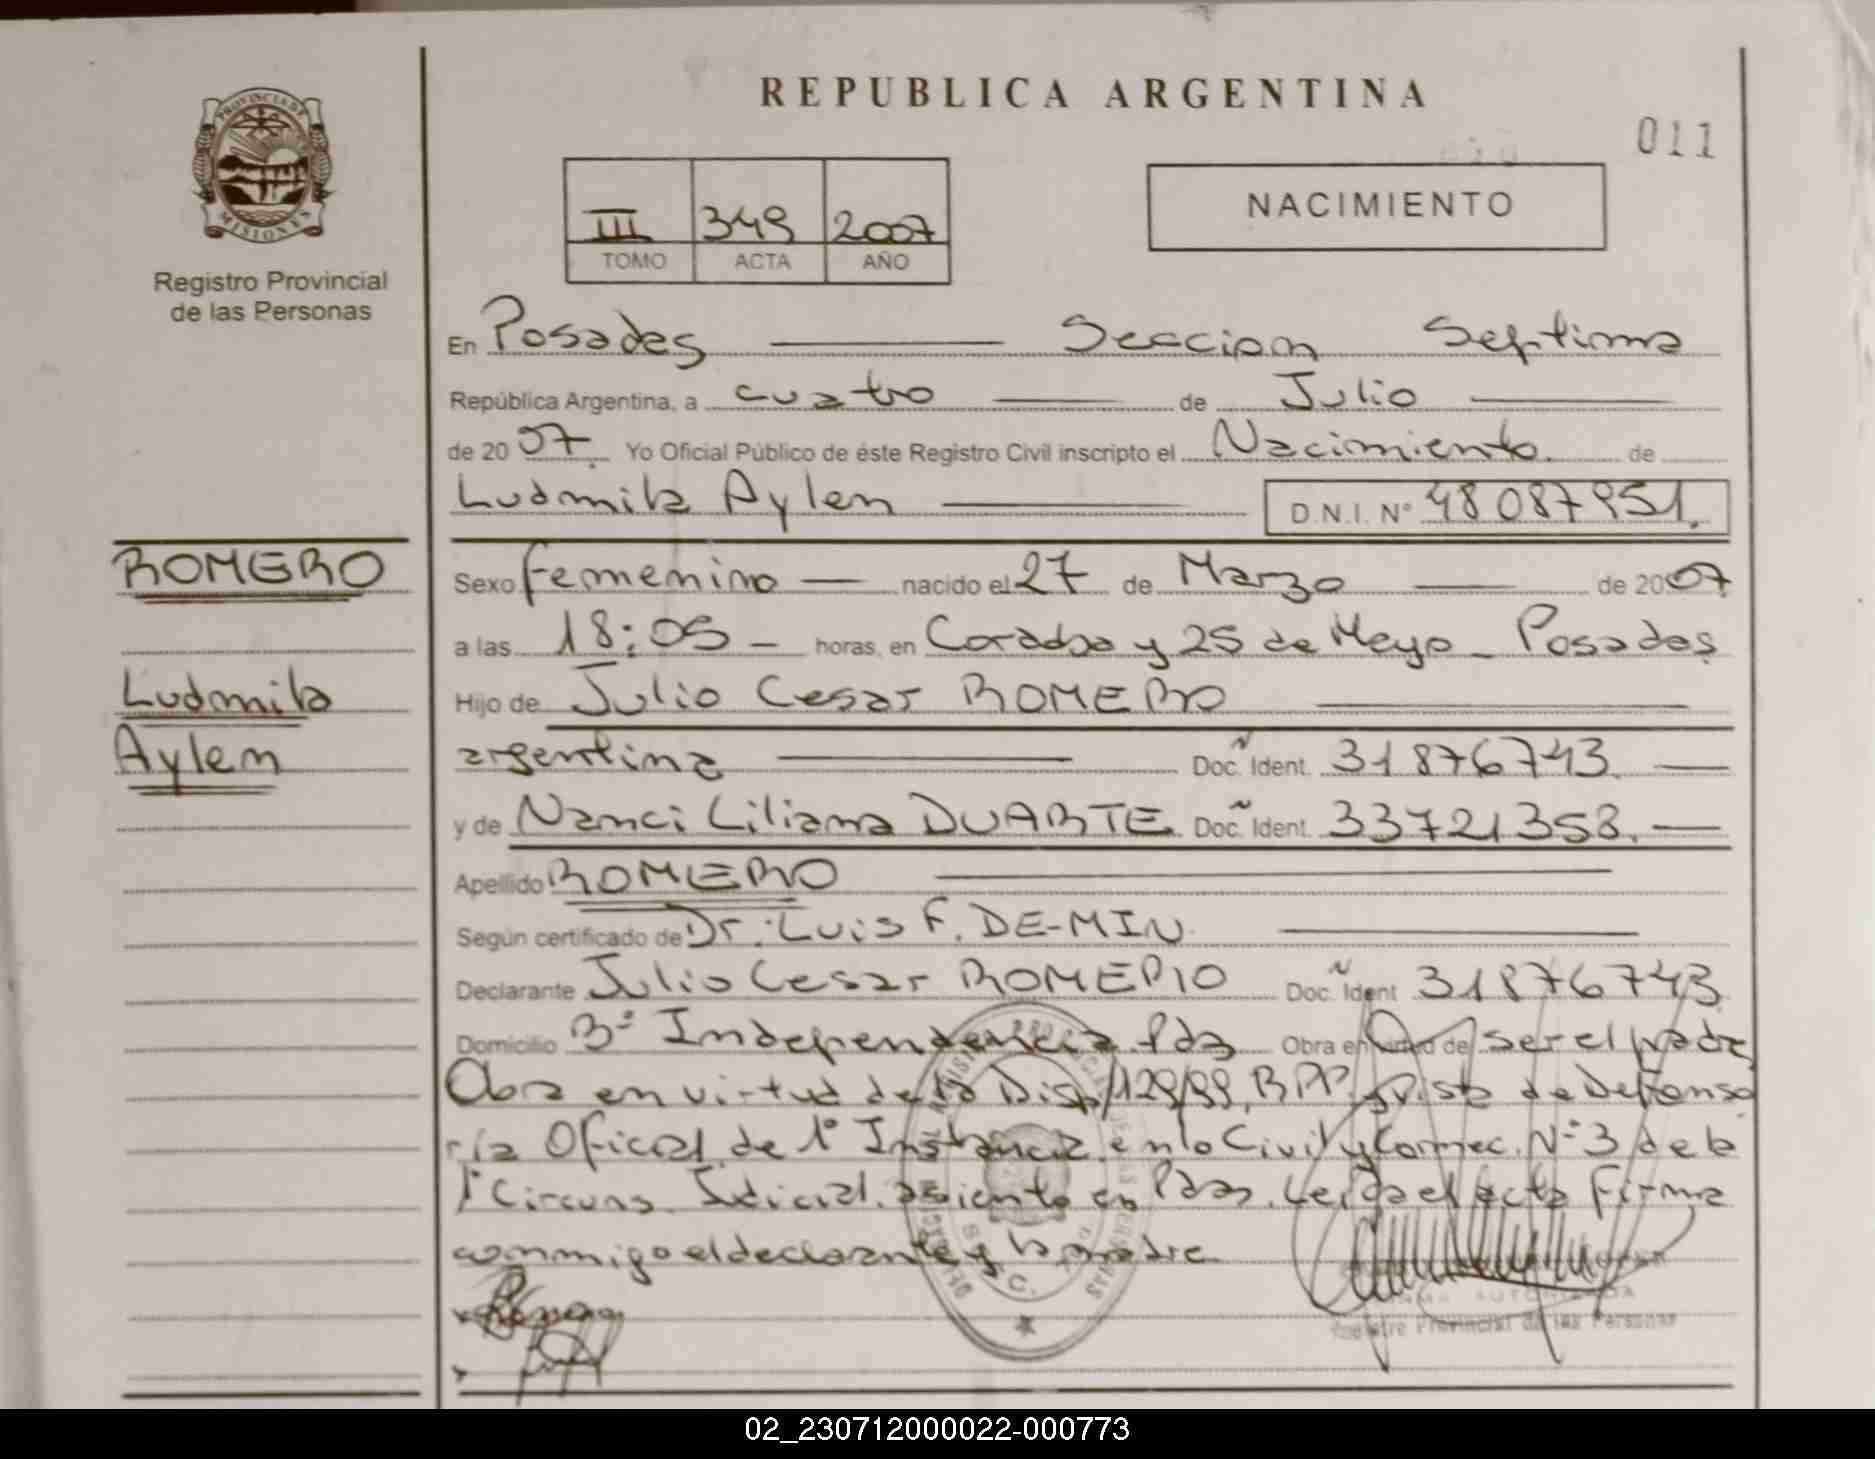 REPUBLICA ARGENTINA
011
PROVINCIA DE
MISIONES
Registro Provincial
de las Personas
III 349 2007
TOMO ACTA AÑO
NACIMIENTO
En Posadas Seccion Septima
República Argentina, a cuatro de Julio
de 2007. Yo Oficial Público de éste Registro Civil inscripto el Nacimiento de
Ludmila Aylen D.N.I. Nº 48087951.
ROMERO
Ludmila
Aylen
Sexo femenino nacido el 27 de Marzo de 2007
a las 18:05 - horas, en Cordoba y 25 de Mayo - Posadas
Hijo de Julio Cesar ROMERO
argentina Doc. Ident. 31876743.
y de Nanci Liliana DUARTE Doc. Ident. 33721358.
Apellido ROMERO
Según certificado de Dr. Luis F. DE-MIN
Declarante Julio Cesar ROMERO Doc. Ident 31876743
Domicilio Bº Independencia Pdas Obra en virtud de ser el padre
Obra en virtud de la Disp/129/99, BPP. y Vista de Defenso
ria Oficial de 1º Instancia en lo Civil y Comec. Nº 3 de la
1º Circuns. Judicial. asiento en Pdas. Leida el acta firma
conmigo el declarante y la madre
AUTORIZADA
Registro Provincial de las Personas
02_230712000022-000773